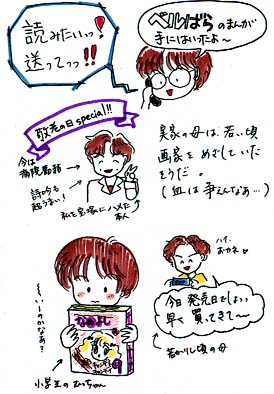 読みたいっっ!
送ってっっ!!
ベルばらのまんが
手にはいったよ~
敬老の日special!!
今は
病院勤務
詩吟も
超うまい!
私を宝塚にハメた
あん
実家の母は、若い頃
画家をめざしていた
そうだ。
(血は争えんなあ…)
い~のかなあ?
なかよし
小学生のむっちゃん
ハイ、
おやおや
今日発売日でしょっ
早く買ってきて~
若かりし頃の母